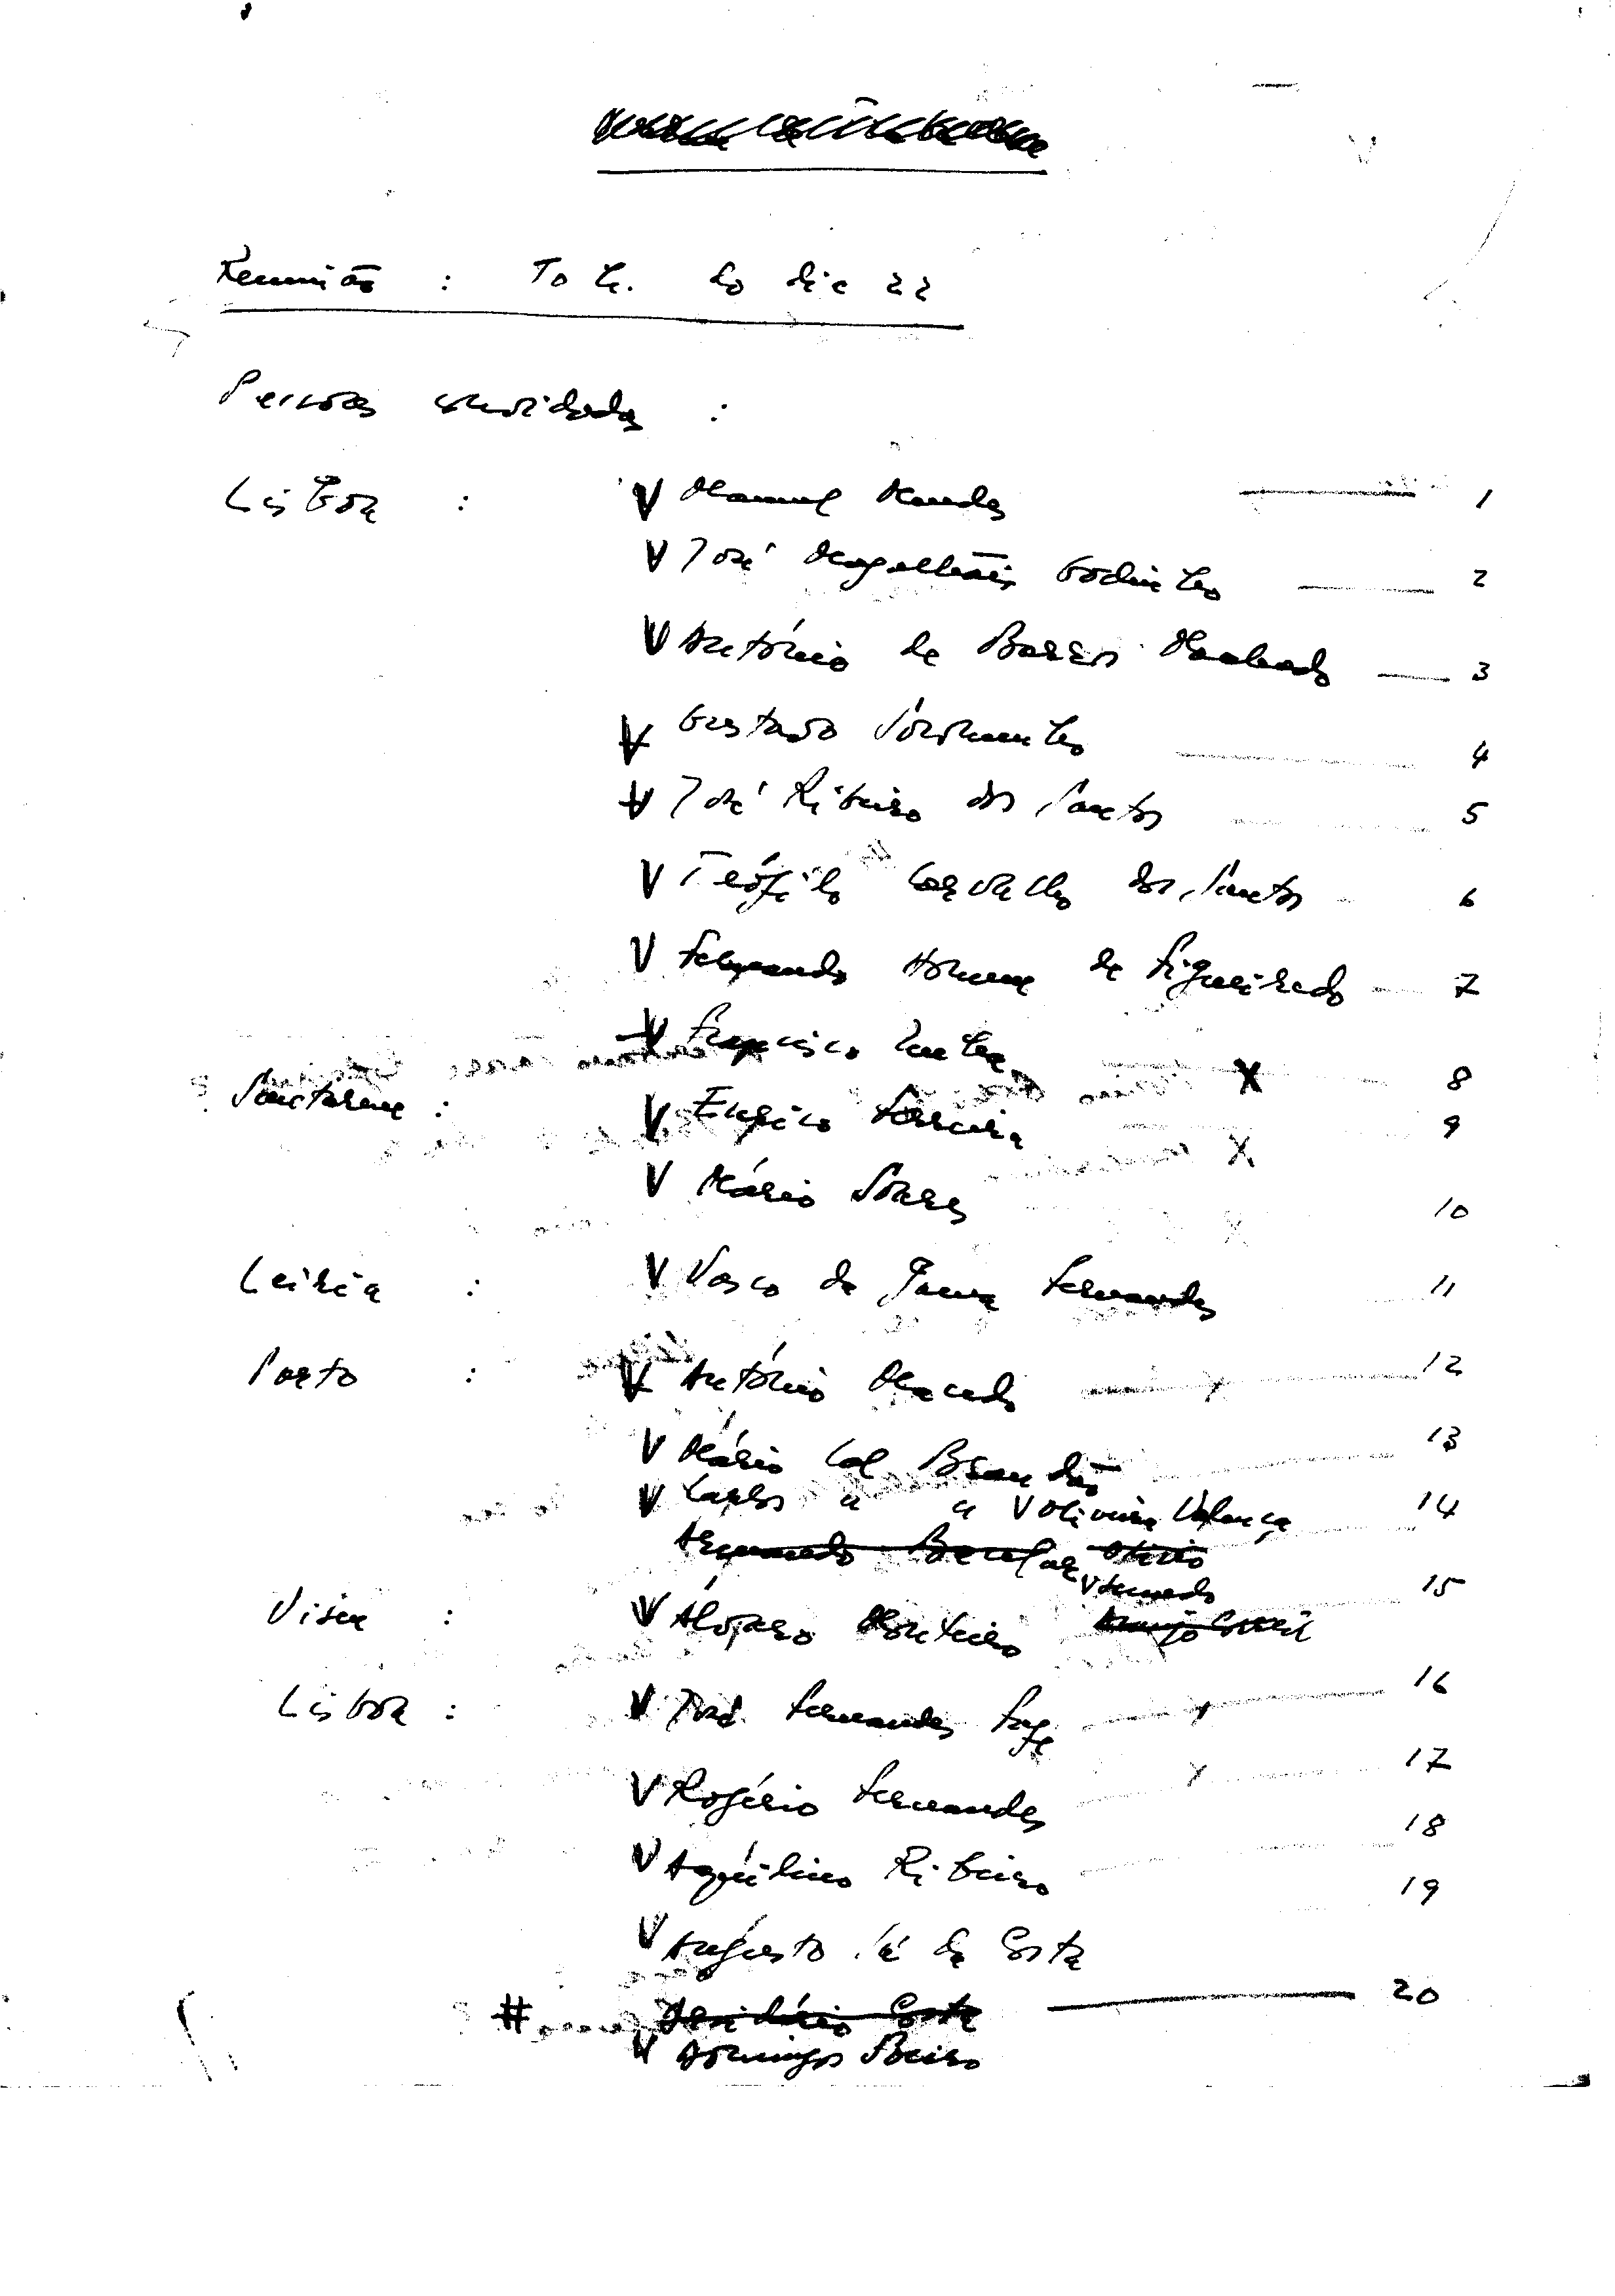 Reunião : 10 h. do dia 22
Pessoas convidadas :
Lisboa : V Manuel Mendes 1
V José Magalhães Godinho 2
V António de Barros Machado 3
V Gustavo Soromenho 4
V José Ribeiro dos Santos 5
V Teófilo Carvalho dos Santos 6
V Fernando Homem de Figueiredo 7
V Francisco X 8
Santarém : V Eurico Ferreira X 9
V Mário Soares 10
Leiria : V Vasco da Gama Fernandes 11
Porto : V António Macedo 12
V Mário Cal Brandão 13
V Carlos " " V Oliveira Valença 14
Armando Bacelar
V Armando 15
Viseu : V Álvaro Monteiro Araújo Correia
Lisboa : V José Fernandes Fafe 16
V Rogério Fernandes 17
V Aquilino Ribeiro 18
V Augusto Sá da Costa 19
# Desidério Costa 20
V Domingos